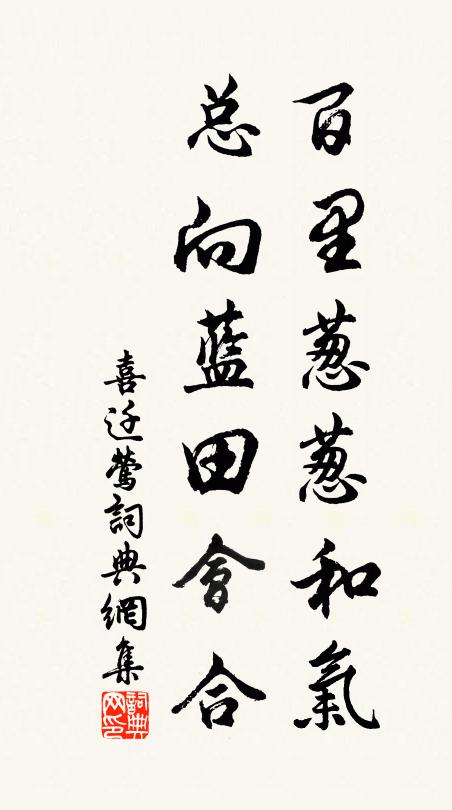 百里葱葱和氣
总向藍田會合
喜迁鶯詞典網集
詞典网印